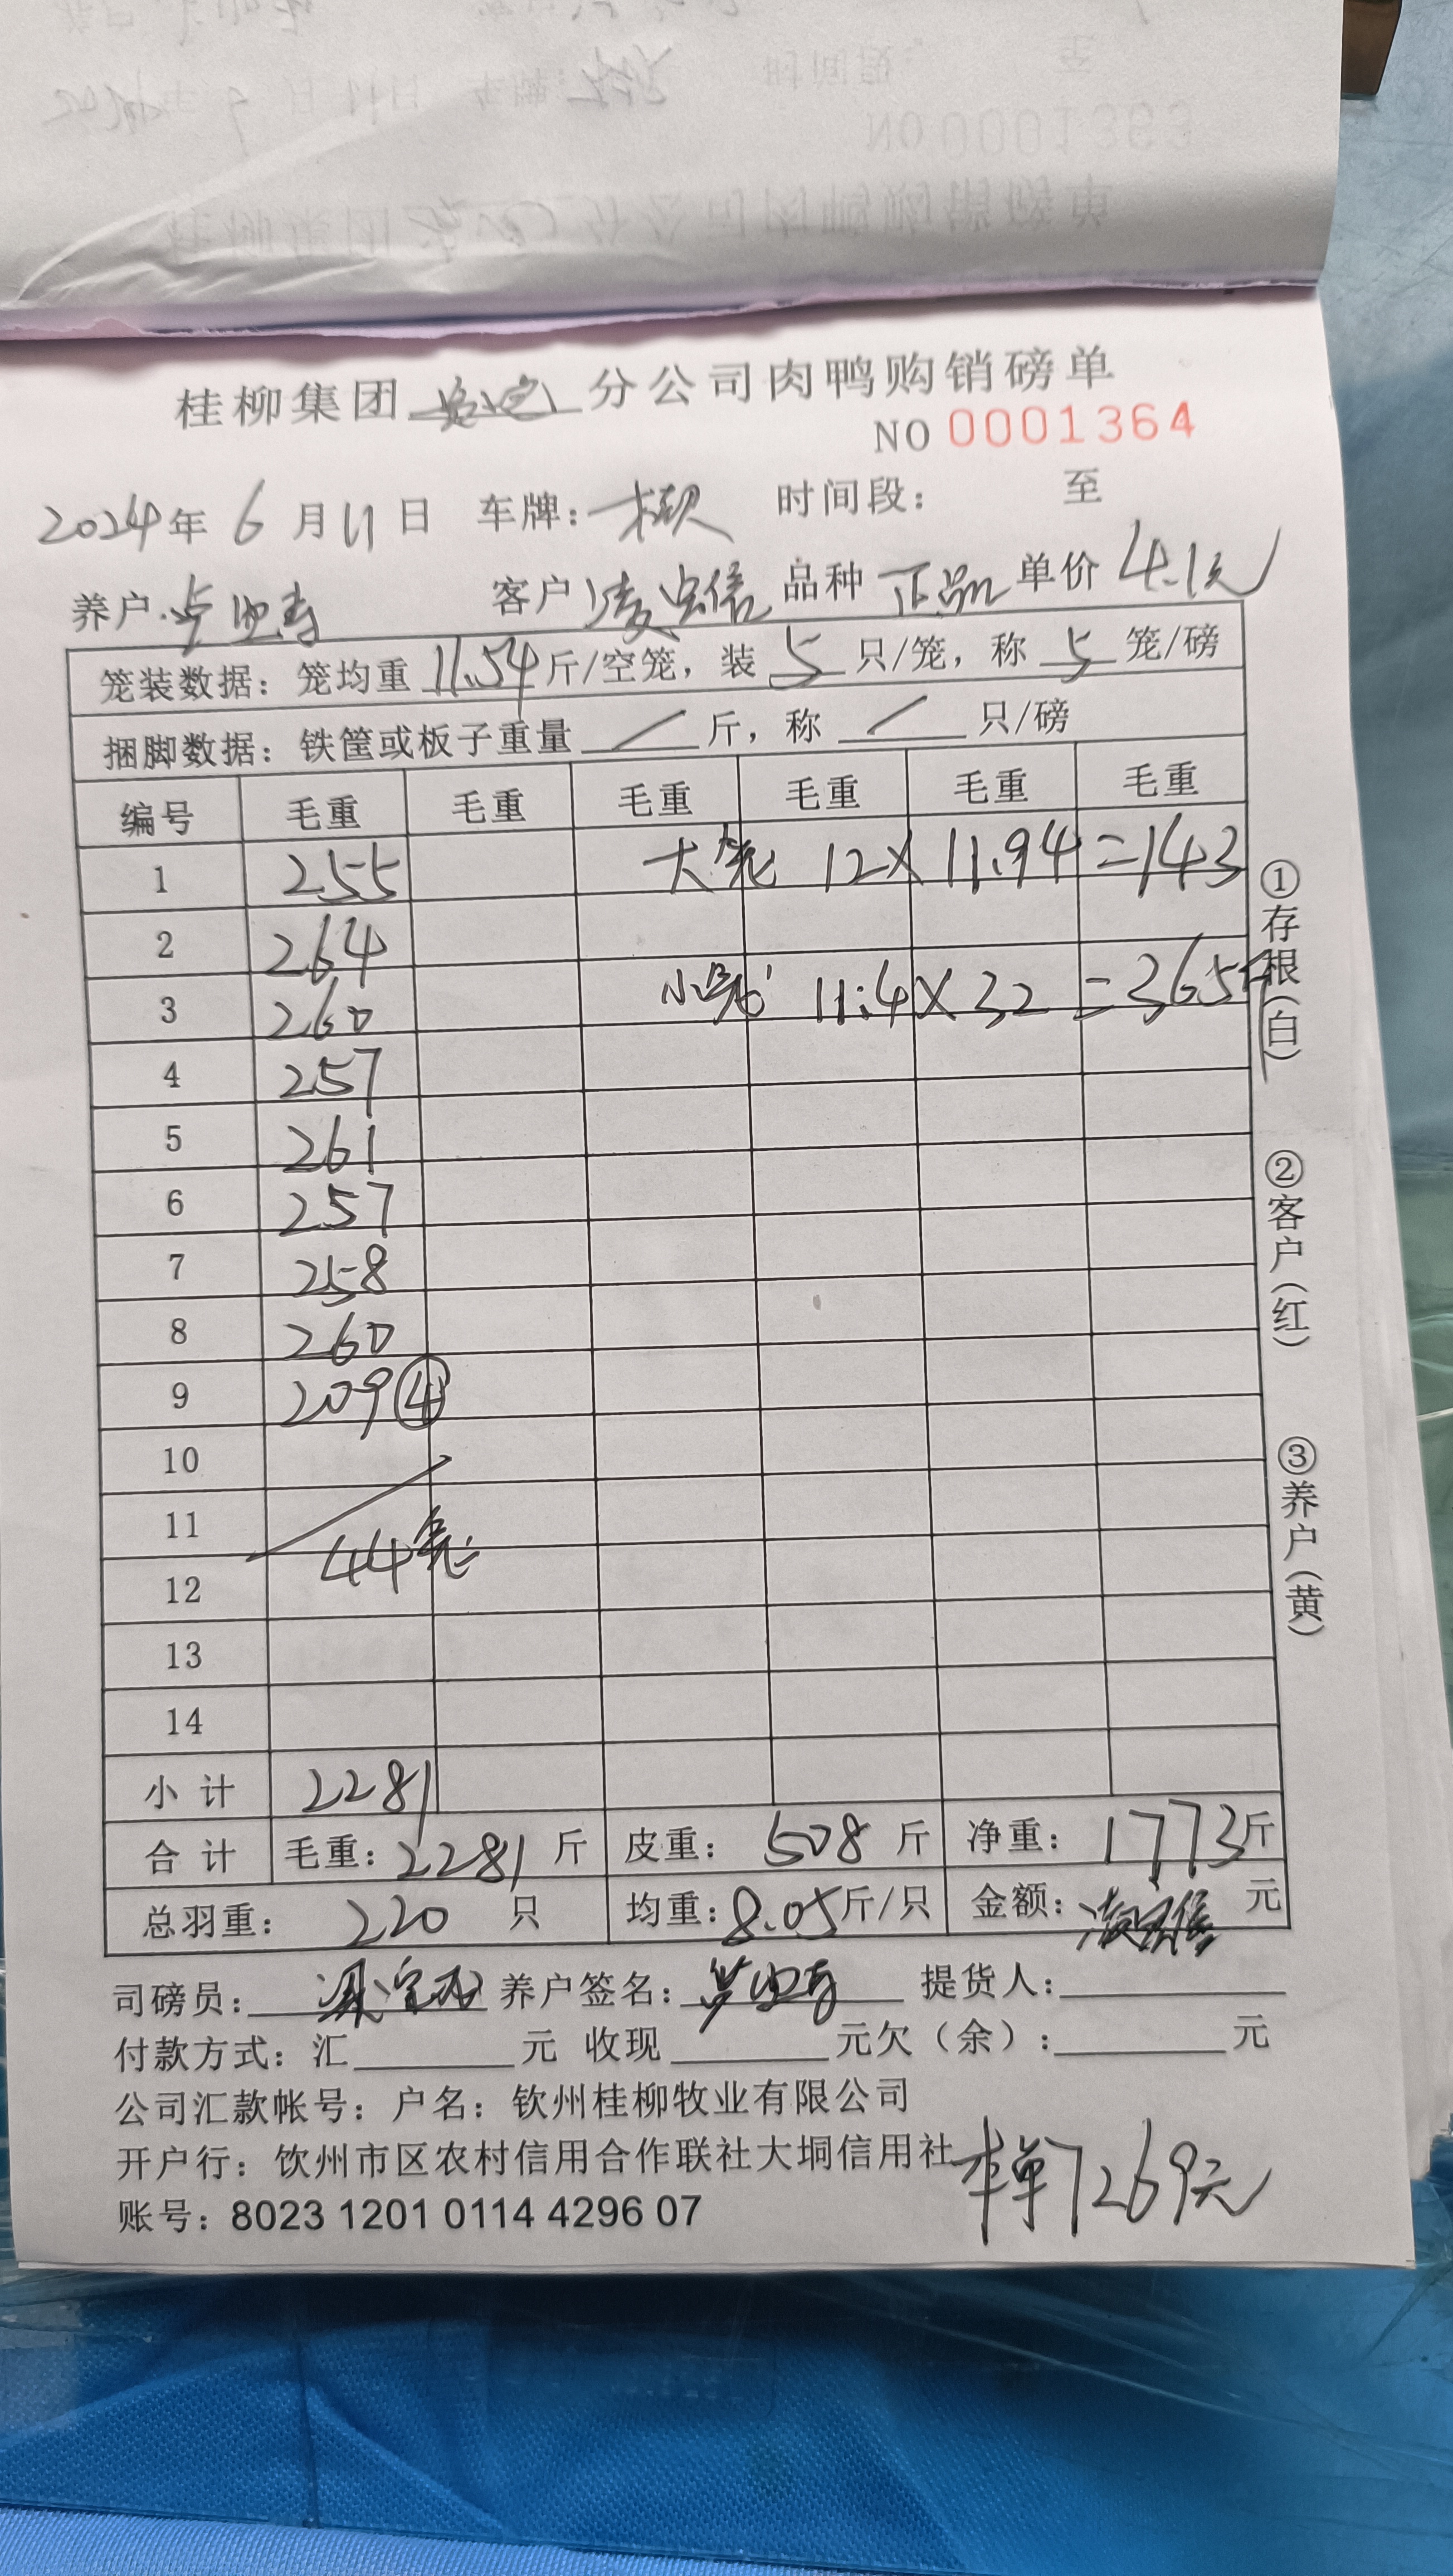 NO 0001363
桂柳集团 分公司肉鸭购销磅单
NO 0001364
2024年 6 月 11 日 车牌: 时间段: 至
养户: 卢 客户 凌忠信 品种 正品 单价 4.1元
笼装数据: 笼均重 11.54 斤/空笼, 装 5 只/笼, 称 5 笼/磅
捆脚数据: 铁筐或板子重量 / 斤, 称 / 只/磅
编号 毛重 毛重 毛重 毛重 毛重 毛重
1 255 大笼 12×11.94=143
2 264
3 260 小笼 11.4×32=365斤
4 257
5 261
6 257
7 258
8 260
9 209④
10
11
12 44笼
13
14
小计 2281
合计 毛重: 2281 斤 皮重: 508 斤 净重: 1773斤
总羽重: 220 只 均重: 8.05斤/只 金额: 凌忠信 元
司磅员: 养户签名: 提货人:
付款方式: 汇 元 收现 元欠(余): 元
公司汇款帐号: 户名: 钦州桂柳牧业有限公司
开户行: 饮州市区农村信用合作联社大垌信用社
账号: 8023 1201 0114 4296 07
本单7269元
①存根(白)
②客户(红)
③养户(黄)